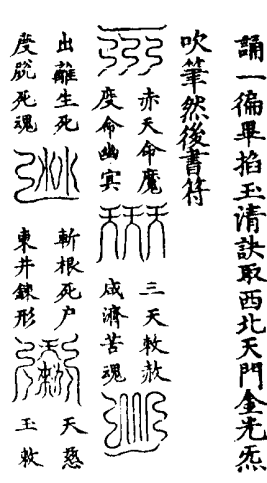 誦一徧畢掐玉清訣取西北天門金光炁
吹筆然後書符
赤天命魔
度命幽冥
三天敕赦
咸濟苦魂
出離生死
度脫死魂
斬根死户
東井鍊形
天慈
玉敕